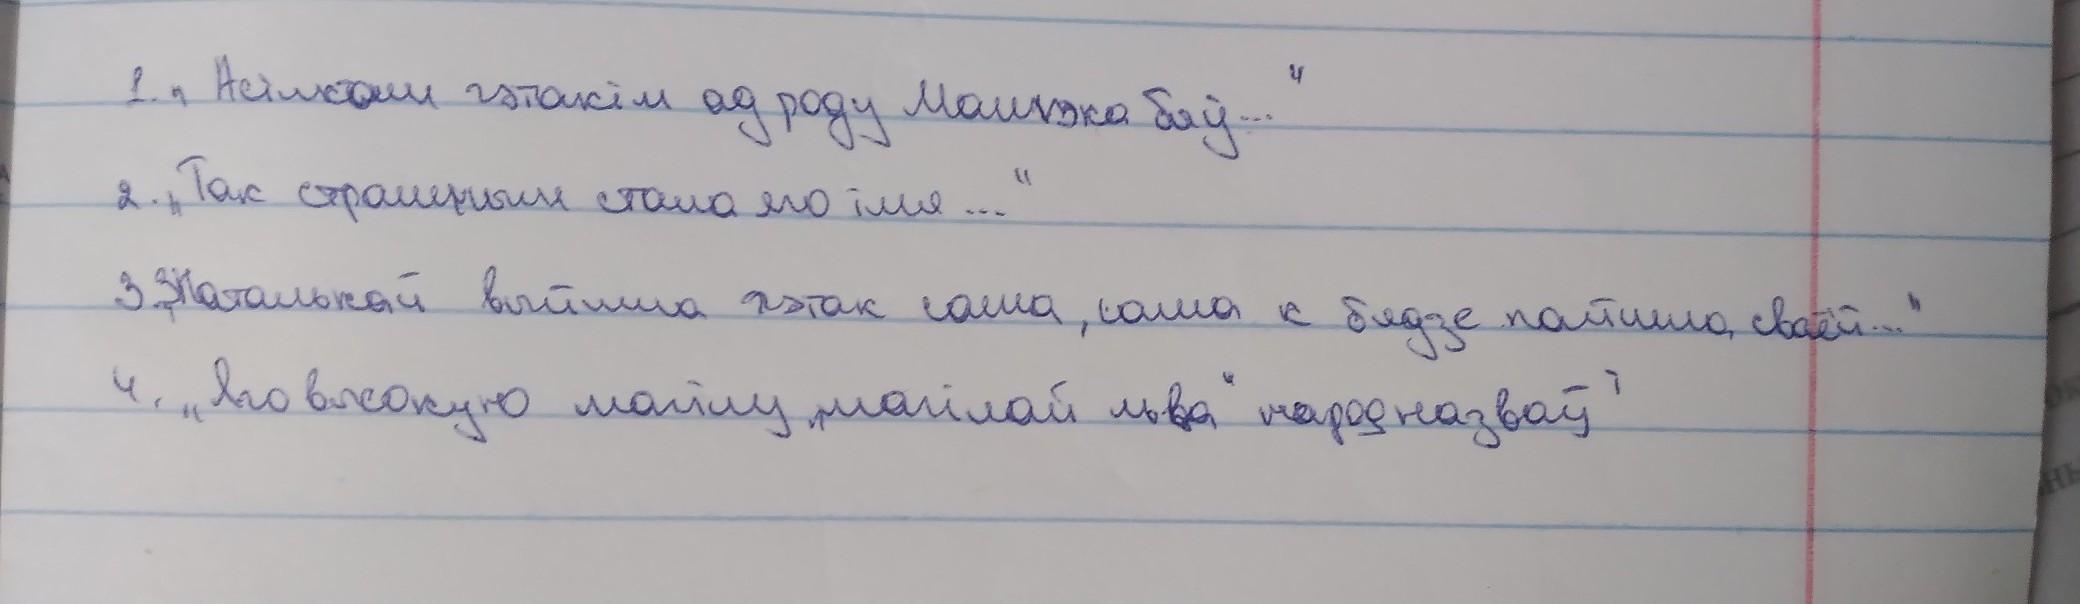 1. „Асілкам гэтакім ад роду Машэка быў..."
2. „Так страшным стала яго імя..."
3. „З Наталькай выйшла гэтак сама, сама к бядзе пайшла сваёй..."
4. „Яго высокую магілу „магілай льва" народ назваў"